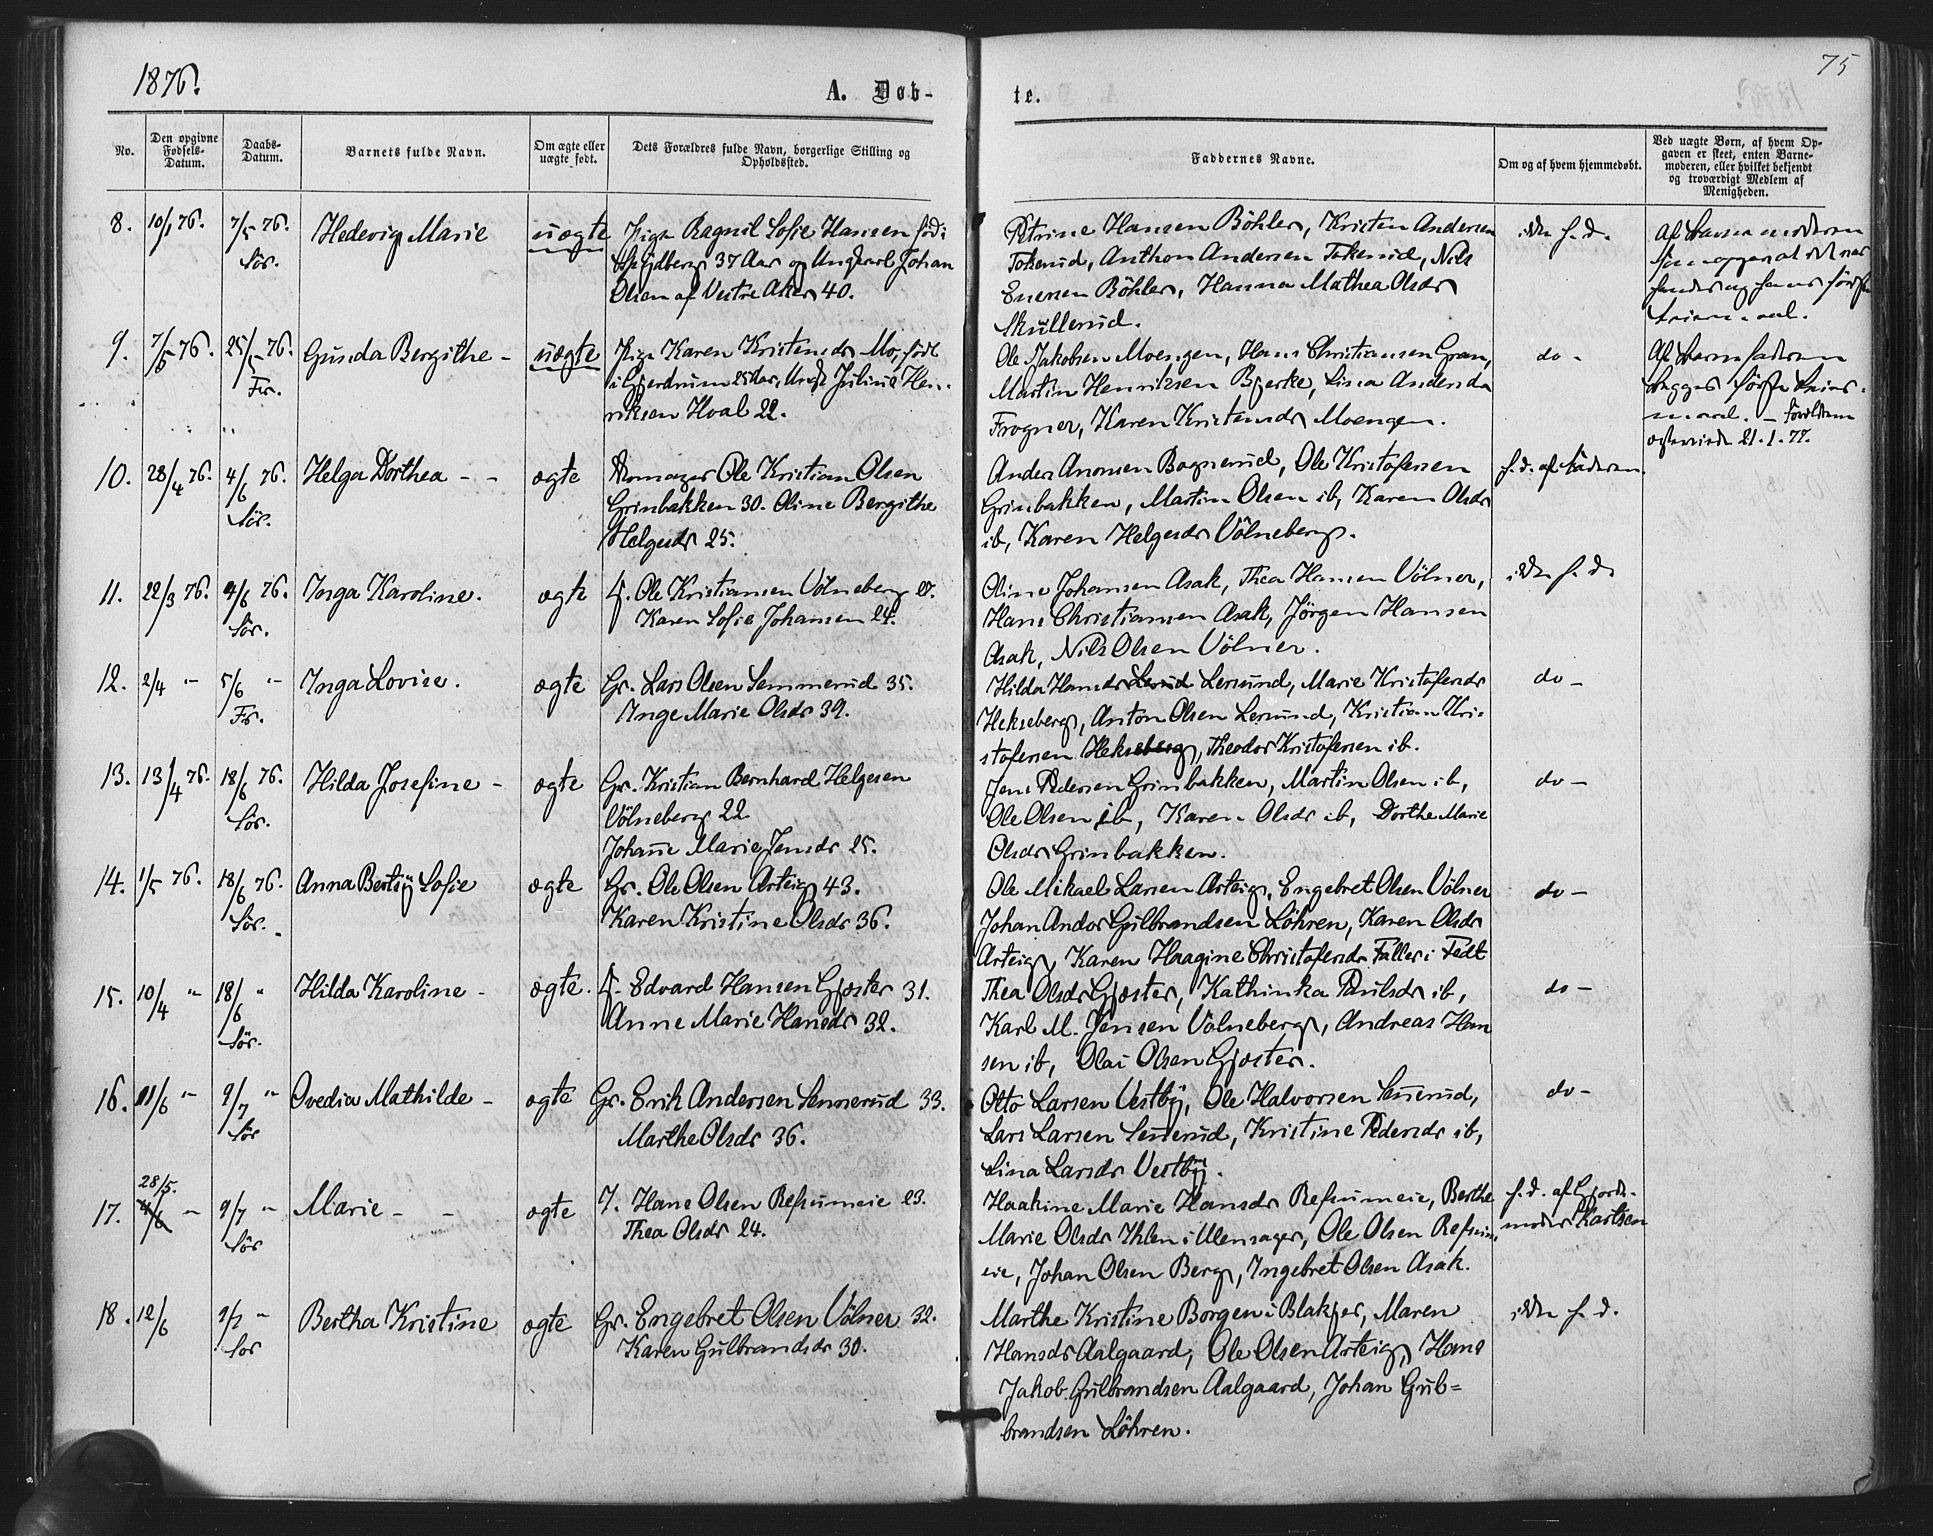 1876.
75
A. Døb-
te.
No.
Den opgivne
Fødsels-
Datum.
Daabs-
Datum.
Barnets fulde Navn.
Om ægte eller
uægte født.
Dets Forældres fulde Navn, borgerlige Stilling og
Opholdssted.
Faddernes Navne.
Om og af hvem hjemmedøbt.
Ved uægte Børn, af hvem Op-
gaven er skeet, enten Barne-
moderen, eller hvilket bekjendt
og troværdigt Medlem af
Menigheden.
8. 10/1 76. 7/5 76. Sör. Hedevig Marie uægte
Pige Ragnil Sofie Hansen föd i
37 Aar og Ungkarl Johan
Olsen af Vestre Aker 40.
Petrine Hansen Böhler, Kristen Andersen
Tokerud, Anthon Andersen Tokerud, Nils
Enersen Böhler, Hanna Mathea Olsdr
Skullerud.
ikke h. d.
Af Barnemoderen
9. 7/5 76. 25/5 76. Fr. Gunda Bergithe - uægte
Pige Karen Kristensdr Mo, födt
i Gjerdrum 25 Aar, Ungk Julius Hen-
riksen Hval 22.
Ole Jakobsen Moengen, Hans Christiansen Gran,
Martin Henriksen Bjerke, Lina Andersdr
Frogner, Karen Kristensdr Moengen.
do -
Af Barnefaderen
Begges förste Leiers-
maal. - Foreldrene
21.1.77.
10. 28/4 76. 4/6 76. Sör. Helga Dorthea - - ægte
Ole Kristian Olsen
Grinbakken 30. Oline Bergithe
Helgesdr 25.
Anders Anonsen Bognerud, Ole Kristofersen
Grinbakken, Martin Olsen ib, Karen Olsdr
ib, Karen Helgesdr Völneberg.
h. d. af Faderen
11. 22/3 76. 4/6 76. Sör. Inga Karoline. ægte
Ole Kristiansen Völneberg 27.
Karen Sofie Johansen 24.
Oline Johansen Asak, Thea Hansen Völner,
Hans Christiansen Asak, Jörgen Hansen
Asak, Nils Olsen Völner.
ikke h. d.
12. 2/4 " 5/6 " Fr. Inga Lovise. ægte
Gr. Lars Olsen Semmerud 35.
Inge Marie Olsdr 39.
Hilda Hansdr Lersund, Marie Kristofersdr
Hekseberg, Anton Olsen Lersund, Kristian Kri-
stofersen Hekseberg, Theodor Kristofersen ib.
do -
13. 13/4 76. 18/6 76. Sör. Hilda Josefine - ægte
Gr. Kristian Bernhard Helgesen
Völneberg 22
Johane Marie Jensdr 25.
Jens Pedersen Grinbakken, Martin Olsen ib,
Ole Olsen ib, Karen Olsdr ib, Dorthe Marie
Olsdr Grinbakken.
do -
14. 1/5 76. 18/6 76. Sör. Anna Bertsÿ Sofie ægte
Gr. Ole Olsen Arteig 43.
Karen Kristine Olsdr 36.
Ole Mikael Larsen Arteig, Engebret Olsen Völner
Johan Andor Gulbrandsen Löhren, Karen Olsdr
Arteig, Karen Haagine Christofersdr Faller i Fedt
do -
15. 10/4 " 18/6 " Sör. Hilda Karoline - ægte.
Edvard Hansen Gjøster 31.
Anne Marie Hansdr 32.
Thea Olsdr Gjøster, Kathinka Paulsdr ib,
Karl M. Jensen Völneberg, Andreas Han
sen ib, Olai Olsen Gjøster.
do -
16. 11/6 " 9/7 " Sör Ovedia Mathilde - ægte
Gr. Erik Andersen Sennerud 33.
Marthe Olsdr 36.
Otto Larsen Vestbÿ, Ole Halvorsen Sennerud,
Lars Larsen Sennerud, Kristine Pedersdr ib,
Lina Larsdr Vestbÿ.
do -
17. 28/5. 4/6 " 9/7 " Sör Marie - - ægte
I. Hans Olsen Refsumeie 23.
Thea Olsdr 24.
Haakine Marie Hansdr Refsumeie, Berthe
Marie Olsdr Ihlen i Ullensager, Ole Olsen Refsum
eie, Johan Olsen Berg, Ingebret Olsen Asak.
h. d. af Gjord-
moder Karlsen
18. 12/6 9/7 " Sör Bertha Kristine ægte
Gr. Engebret Olsen Völner 32.
Karen Gulbrandsdr 30.
Marthe Kristine Borgen i Blakjer, Maren
Hansdr Aalgaard, Ole Olsen Arteig, Hans
Jakob Gulbrandsen Aalgaard, Johan Gul-
brandsen Löhren.
ikke h. d.